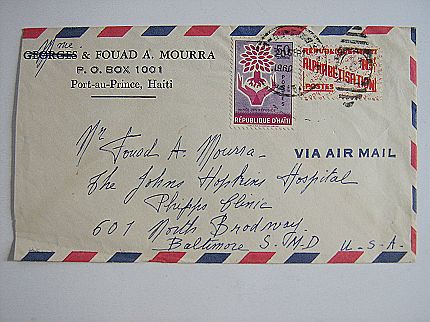 Mme.
GEORGES & FOUAD A. MOURRA
P. O. BOX 1001
Port-au-Prince, Haiti
50
RÉPUBLIQUE D'HAITI
1960
ALPHABETISATION
POSTES
VIA AIR MAIL
Mr Fouad A. Mourra.
The Johns Hopkins Hospital
Phipps Clinic
601 North Brodway.
Baltimore 5. M-D U-S-A.